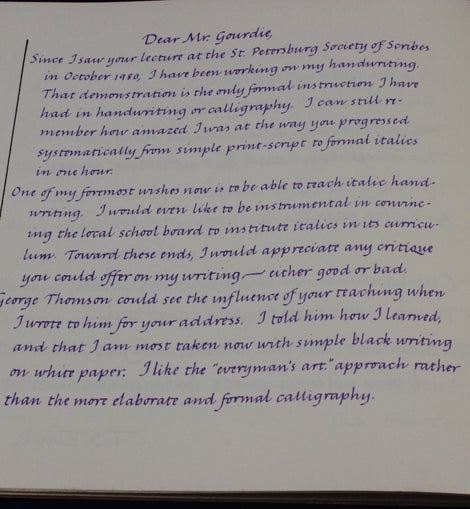 Dear Mr. Gourdie,
Since I saw your lecture at the St. Petersburg Society of Scribes
in October 1980, I have been working on my handwriting.
That demonstration is the only formal instruction I have
had in handwriting or calligraphy. I can still re-
member how amazed I was at the way you progressed
systematically from simple print-script to formal italics
in one hour.
One of my foremost wishes now is to be able to teach italic hand-
writing. I would even like to be instrumental in convinc-
ing the local school board to institute italics in its curricu-
lum. Toward these ends, I would appreciate any critique
you could offer on my writing — either good or bad.
George Thomson could see the influence of your teaching when
I wrote to him for your address. I told him how I learned,
and that I am most taken now with simple black writing
on white paper. I like the "everyman's art." approach rather
than the more elaborate and formal calligraphy.